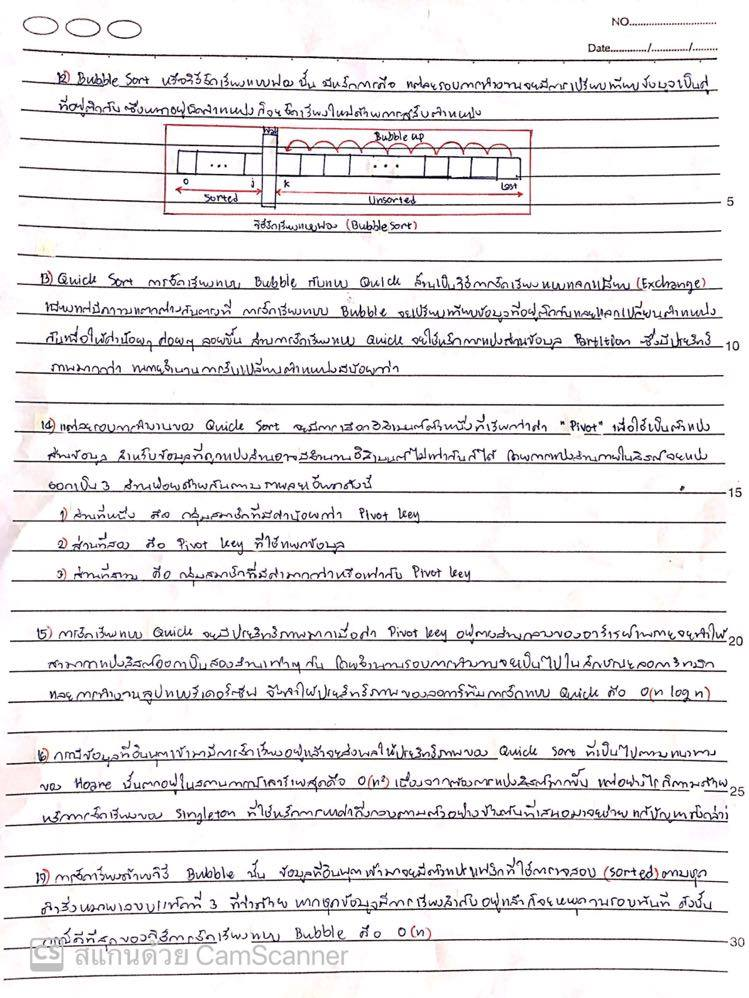 NO...............................
Date............./............../.........
12) Bubble Sort หรือวิธีจัดเรียงแบบฟอง นั้น มีหลักการคือ แต่ละรอบการทำงานจะมีการเปรียบเทียบข้อมูลเป็นคู่
ที่อยู่ติดกัน ซึ่งหากอยู่ผิดตำแหน่ง ก็จะจัดเรียงใหม่ด้วยการสลับตำแหน่ง
Wall
Bubble up
...
...
0 j k Last
Sorted Unsorted
5
วิธีจัดเรียงแบบฟอง (Bubble Sort)
13) Quick Sort การจัดเรียงแบบ Bubble กับแบบ Quick ล้วนเป็นวิธีการจัดเรียงแบบแลกเปลี่ยน (Exchange)
เพียงแต่มีความแตกต่างกันตรงที่ การจัดเรียงแบบ Bubble จะเปรียบเทียบข้อมูลที่อยู่ติดกันและแลกเปลี่ยนตำแหน่ง
กันเพื่อให้ค่าน้อยๆ ค่อยๆ ลอยขึ้น ส่วนการจัดเรียงแบบ Quick จะใช้หลักการแบ่งส่วนข้อมูล Partition ซึ่งมีประสิทธิ
10
ภาพมากกว่า และจำนวนการสับเปลี่ยนตำแหน่งน้อยกว่า
14) แต่ละรอบการทำงานของ Quick Sort จะมีการเลือกอิลิเมนต์ตัวหนึ่งที่เรียกว่าค่า "Pivot" เพื่อใช้เป็นตัวแบ่ง
ส่วนข้อมูล สำหรับข้อมูลที่ถูกแบ่งส่วนอาจมีจำนวนอิลิเมนต์ไม่เท่ากันก็ได้ โดยการแบ่งส่วนภายในลิสต์จะแบ่ง
ออกเป็น 3 ส่วนย่อยด้วยกันตามรายละเอียดดังนี้
15
1) ส่วนที่หนึ่ง คือ กลุ่มสมาชิกที่มีค่าน้อยกว่า Pivot key
2) ส่วนที่สอง คือ Pivot key ที่ใช้แยกข้อมูล
3) ส่วนที่สาม คือ กลุ่มสมาชิกที่มีค่ามากกว่าหรือเท่ากับ Pivot key
15) การจัดเรียงแบบ Quick จะมีประสิทธิภาพมากเมื่อค่า Pivot key อยู่ตรงส่วนกลางของอาร์เรย์
20
สามารถแบ่งลิสต์ออกเป็นสองส่วนเท่าๆ กัน โดยจำนวนรอบการทำงานจะเป็นไปในลักษณะลอการิทึม
และการทำงานลูปแบบรีเคอร์ซีฟ จึงทำให้ประสิทธิภาพของอัลกอริทึมการจัดแบบ Quick คือ O(n log n)
16) กรณีข้อมูลที่อินพุตเข้ามามีการจัดเรียงอยู่แล้วจะส่งผลให้ประสิทธิภาพของ Quick Sort ที่เป็นไปตามแนวทาง
ของ Hoare นั้นตกอยู่ในสถานการณ์เลวร้ายสุดคือ O(n²) เนื่องจากต้องการแบ่งลิสต์มากขึ้น แต่อย่างไรก็ตามด้วย
25
หลักการจัดเรียงของ Singleton
19) การจัดเรียงด้วยวิธี Bubble นั้น ข้อมูลที่อินพุตเข้ามาจะมีตัวแปรแฟล็กที่ใช้ตรวจสอบ (sorted) ตามชุด
คำสั่งหมายเลขบรรทัดที่ 3 หากชุดข้อมูลมีการเรียงลำดับอยู่แล้วก็จะหยุดวนรอบทันที ดังนั้น
กรณีดีที่สุดของวิธีการจัดเรียงแบบ Bubble คือ O(n)
30
CS สแกนด้วย CamScanner